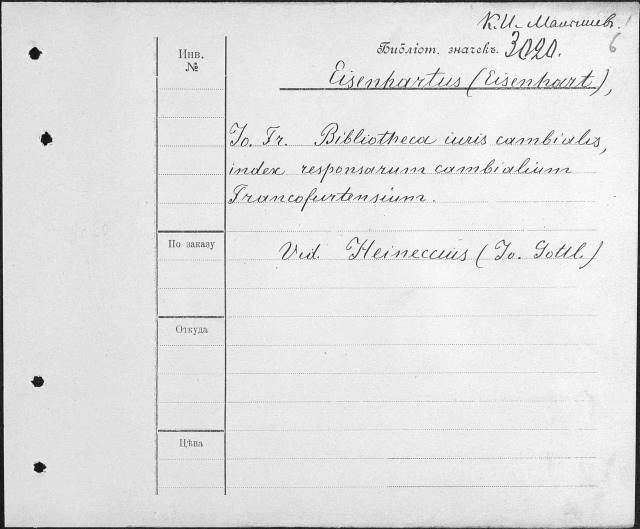 К. И. Малышев.
6
Библіот. значекъ. 3020.
Инв.
№
Eisenhartus (Eisenhart),
Jo. Fr. Bibliotheca iuris cambialis,
index responsarum cambialium
Francofurtensium.
По заказу
Vid. Heineccius (Jo. Gottl.)
Откуда
Цѣна